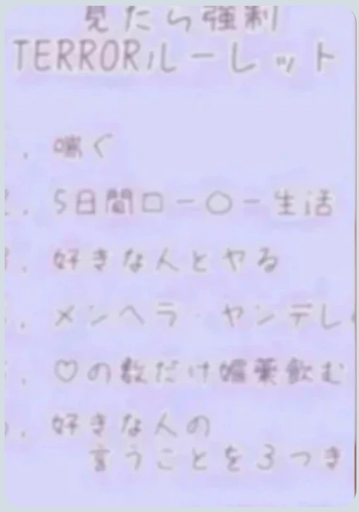 見たら強制
TERRORルーレット
. 喘ぐ
. 5日間ロー○ー生活
. 好きな人とヤる
. メンヘラ・ヤンデレ
. ♡の数だけ媚薬飲む
. 好きな人の
言うことを3つき